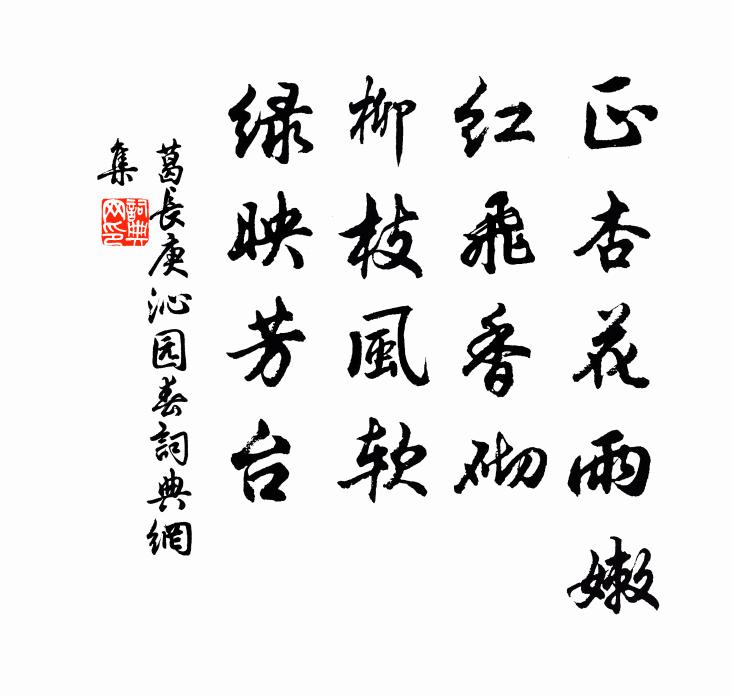 正杏花雨嫩
红飛香砌
柳枝風软
绿映芳台
葛長庚沁园春詞典網
集
詞典
网印